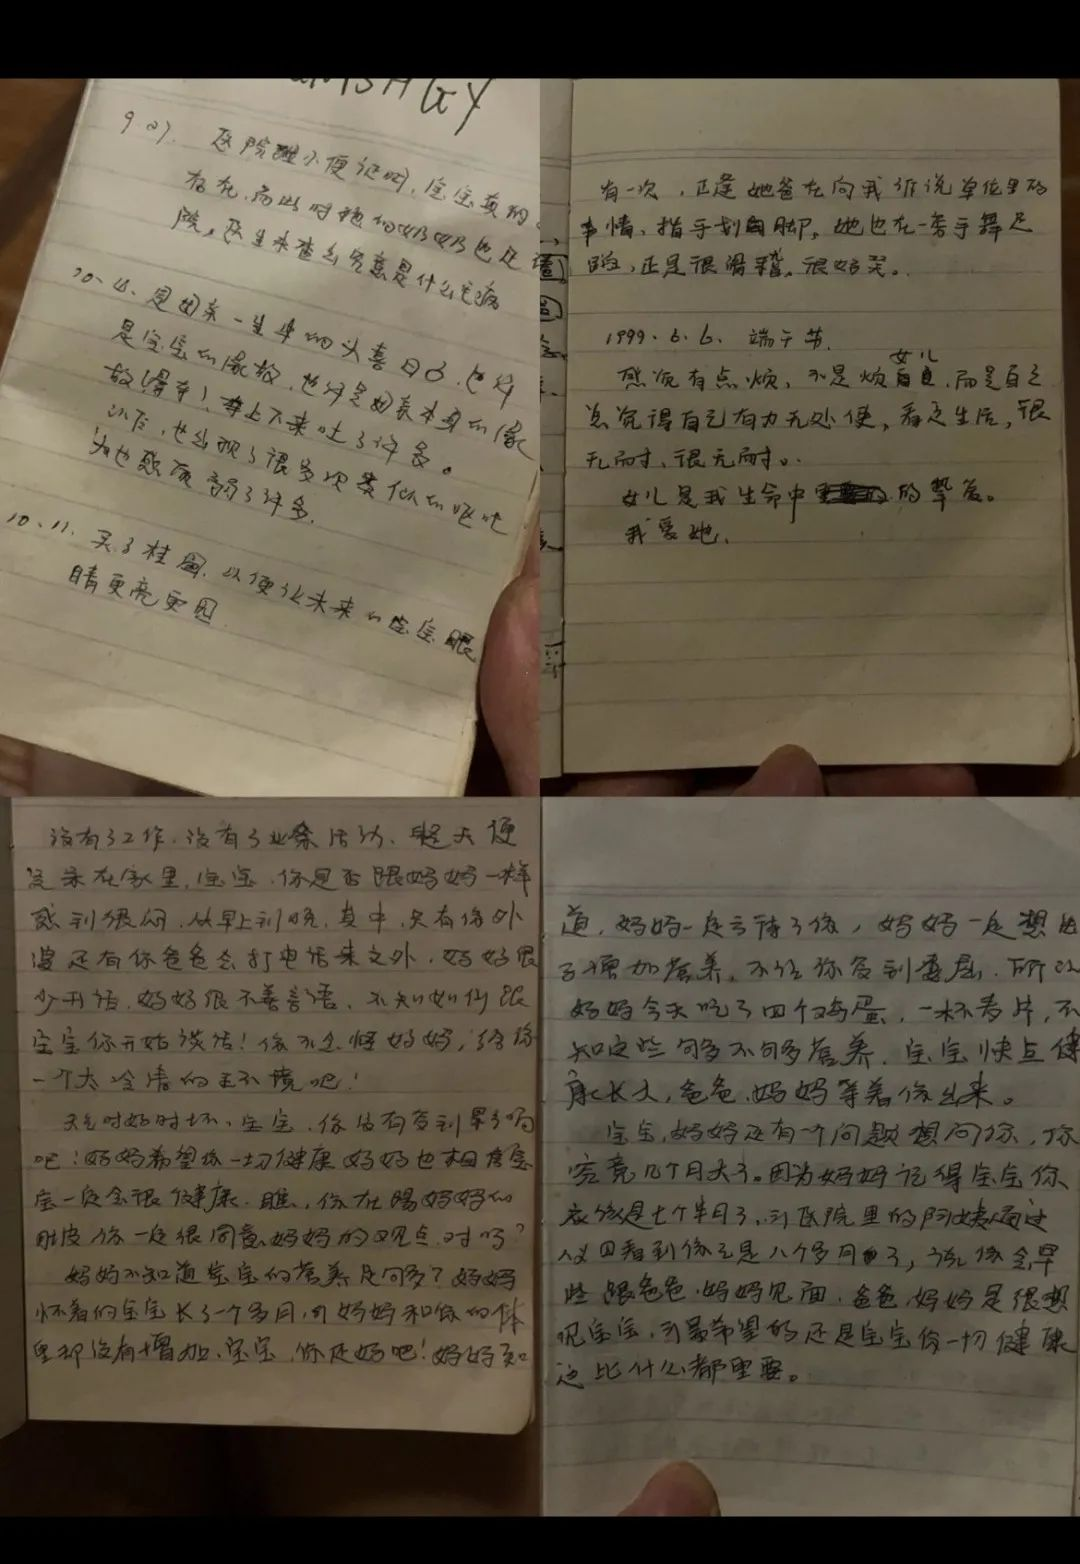 9.27. 医院小便证明，宝宝真的
存在，
院。医生未查出究竟是什么毛病
10.4. 是姐来一生中的大喜日子，也许
是宝宝的缘故，也许是姐来本身的缘
故（晕车），车上下来吐了许多。
以后，也出现了很多次类似的呕吐
为此感质弱了许多.
10.11. 买了桂圆，以便让未来的宝宝眼
睛更亮更圆.
有一次，正逢她爸在向我诉说单位里的
事情、指手划脚，她也在一旁手舞足
蹈，正是很滑稽。很好笑。
1999.6.6. 端午节.
女儿
感觉有点烦，不是烦，而是自己
总觉得自己有力无处使，看之生活，很
无耐，很无耐。
女儿是我生命中的挚爱。
我爱她.
没有了工作，没有了业余活动，整天便
是呆在家里，宝宝，你是否跟妈妈一样
感到很闷，从早上到晚，其中，只有你外
婆还有你爸爸会打电话来之外，妈妈很
少开话，妈妈很不善言语，不知如何跟
宝宝你开始谈话！你不会怪妈妈，给你
一个太冷清的环境吧！
天气时好时坏，宝宝，你没有受到影响
吧！妈妈希望你一切健康，妈妈也相信宝
宝一定会很健康. 瞧，你在踢妈妈的
肚皮，你一定很同意妈妈的观点，对吗？
妈妈不知道宝宝的营养足够？妈妈
怀着的宝宝长了一个多月，可妈妈和你的体
重却没有增加，宝宝，你还好吧！妈妈知
道，妈妈一定亏待了你，妈妈一定想法
子增加营养，不让你受到委屈. 所以
妈妈今天吃了四个鸡蛋，一杯麦片，不
知这些够不够营养，宝宝快点健
康长大，爸爸、妈妈等着你出来。
宝宝，妈妈还有一个问题想问你，你
究竟几个月大了。因为妈妈记得宝宝你
应该是七个半月了，可医院里的阿姨通过
仪口看到你已是八个多月了，说你会早
些跟爸爸、妈妈见面，爸爸、妈妈是很想
见宝宝，可最希望的还是宝宝你一切健康
这比什么都重要。